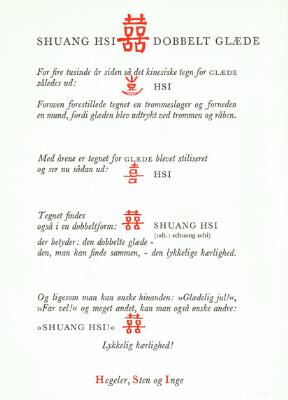 SHUANG HSI 囍 DOBBELT GLÆDE
For fire tusinde år siden så det kinesiske tegn for GLÆDE
således ud: HSI
Foroven forestillede tegnet en trommeslager og forneden
en mund, fordi glæden blev udtrykt ved trommen og råben.
Med årene er tegnet for GLÆDE blevet stiliseret
og ser nu sådan ud: 喜 HSI
Tegnet findes
også i en dobbeltform: 囍 SHUANG HSI
(udt.: schuang schi)
der betyder: den dobbelte glæde -
den, man kan finde sammen, - den lykkelige kærlighed.
Og ligesom man kan ønske hinanden: »Glædelig jul!«,
»Far vel!« og meget andet, kan man også ønske andre:
»SHUANG HSI!« 囍
Lykkelig kærlighed!
Hegeler, Sten og Inge